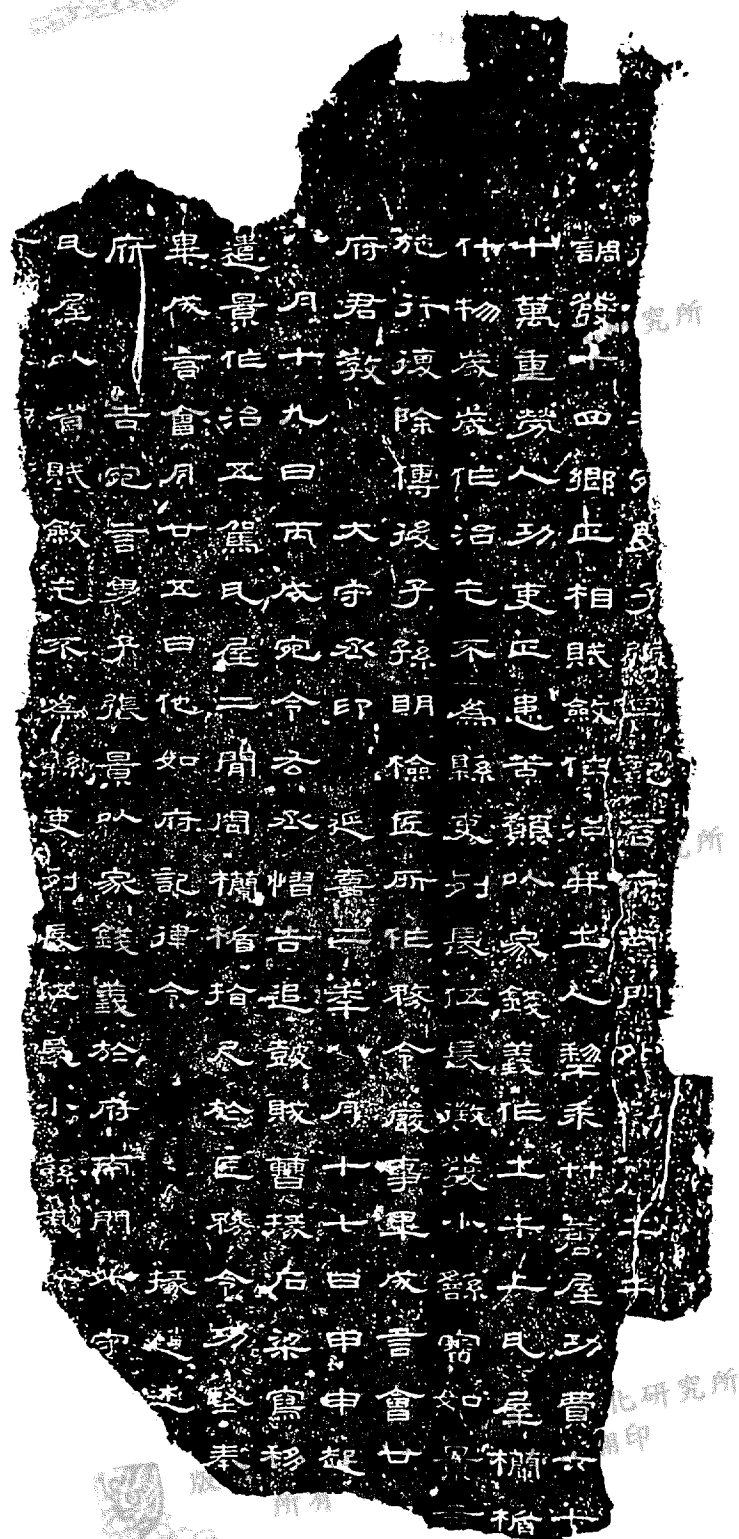 男子張景記言府南門外勸土牛
調發十四鄉正相賦斂作治并土人犁耒廾蓑屋功費六十
十萬重勞人功吏正患苦願以家錢義作土牛上瓦屋欄楯
什物歲歲作治乞不為縣吏列長伍長徵發小繇審如景
施行復除傳後子孫明檢匠所作務令嚴事畢成言會廿
府君教 大守丞印 延熹二年八月十七日甲申起
八月十九日丙戌宛令右丞慴告追鼓賊曹掾石梁寫移
遣景作治五駕瓦屋二間周欄楯拾尺於匠務令功堅奉
畢成言會月廿五日他如府記律令 掾趙述
府告宛言男子張景以家錢義於府南門外守
瓦屋以省賦斂乞不為縣吏列長伍長小繇